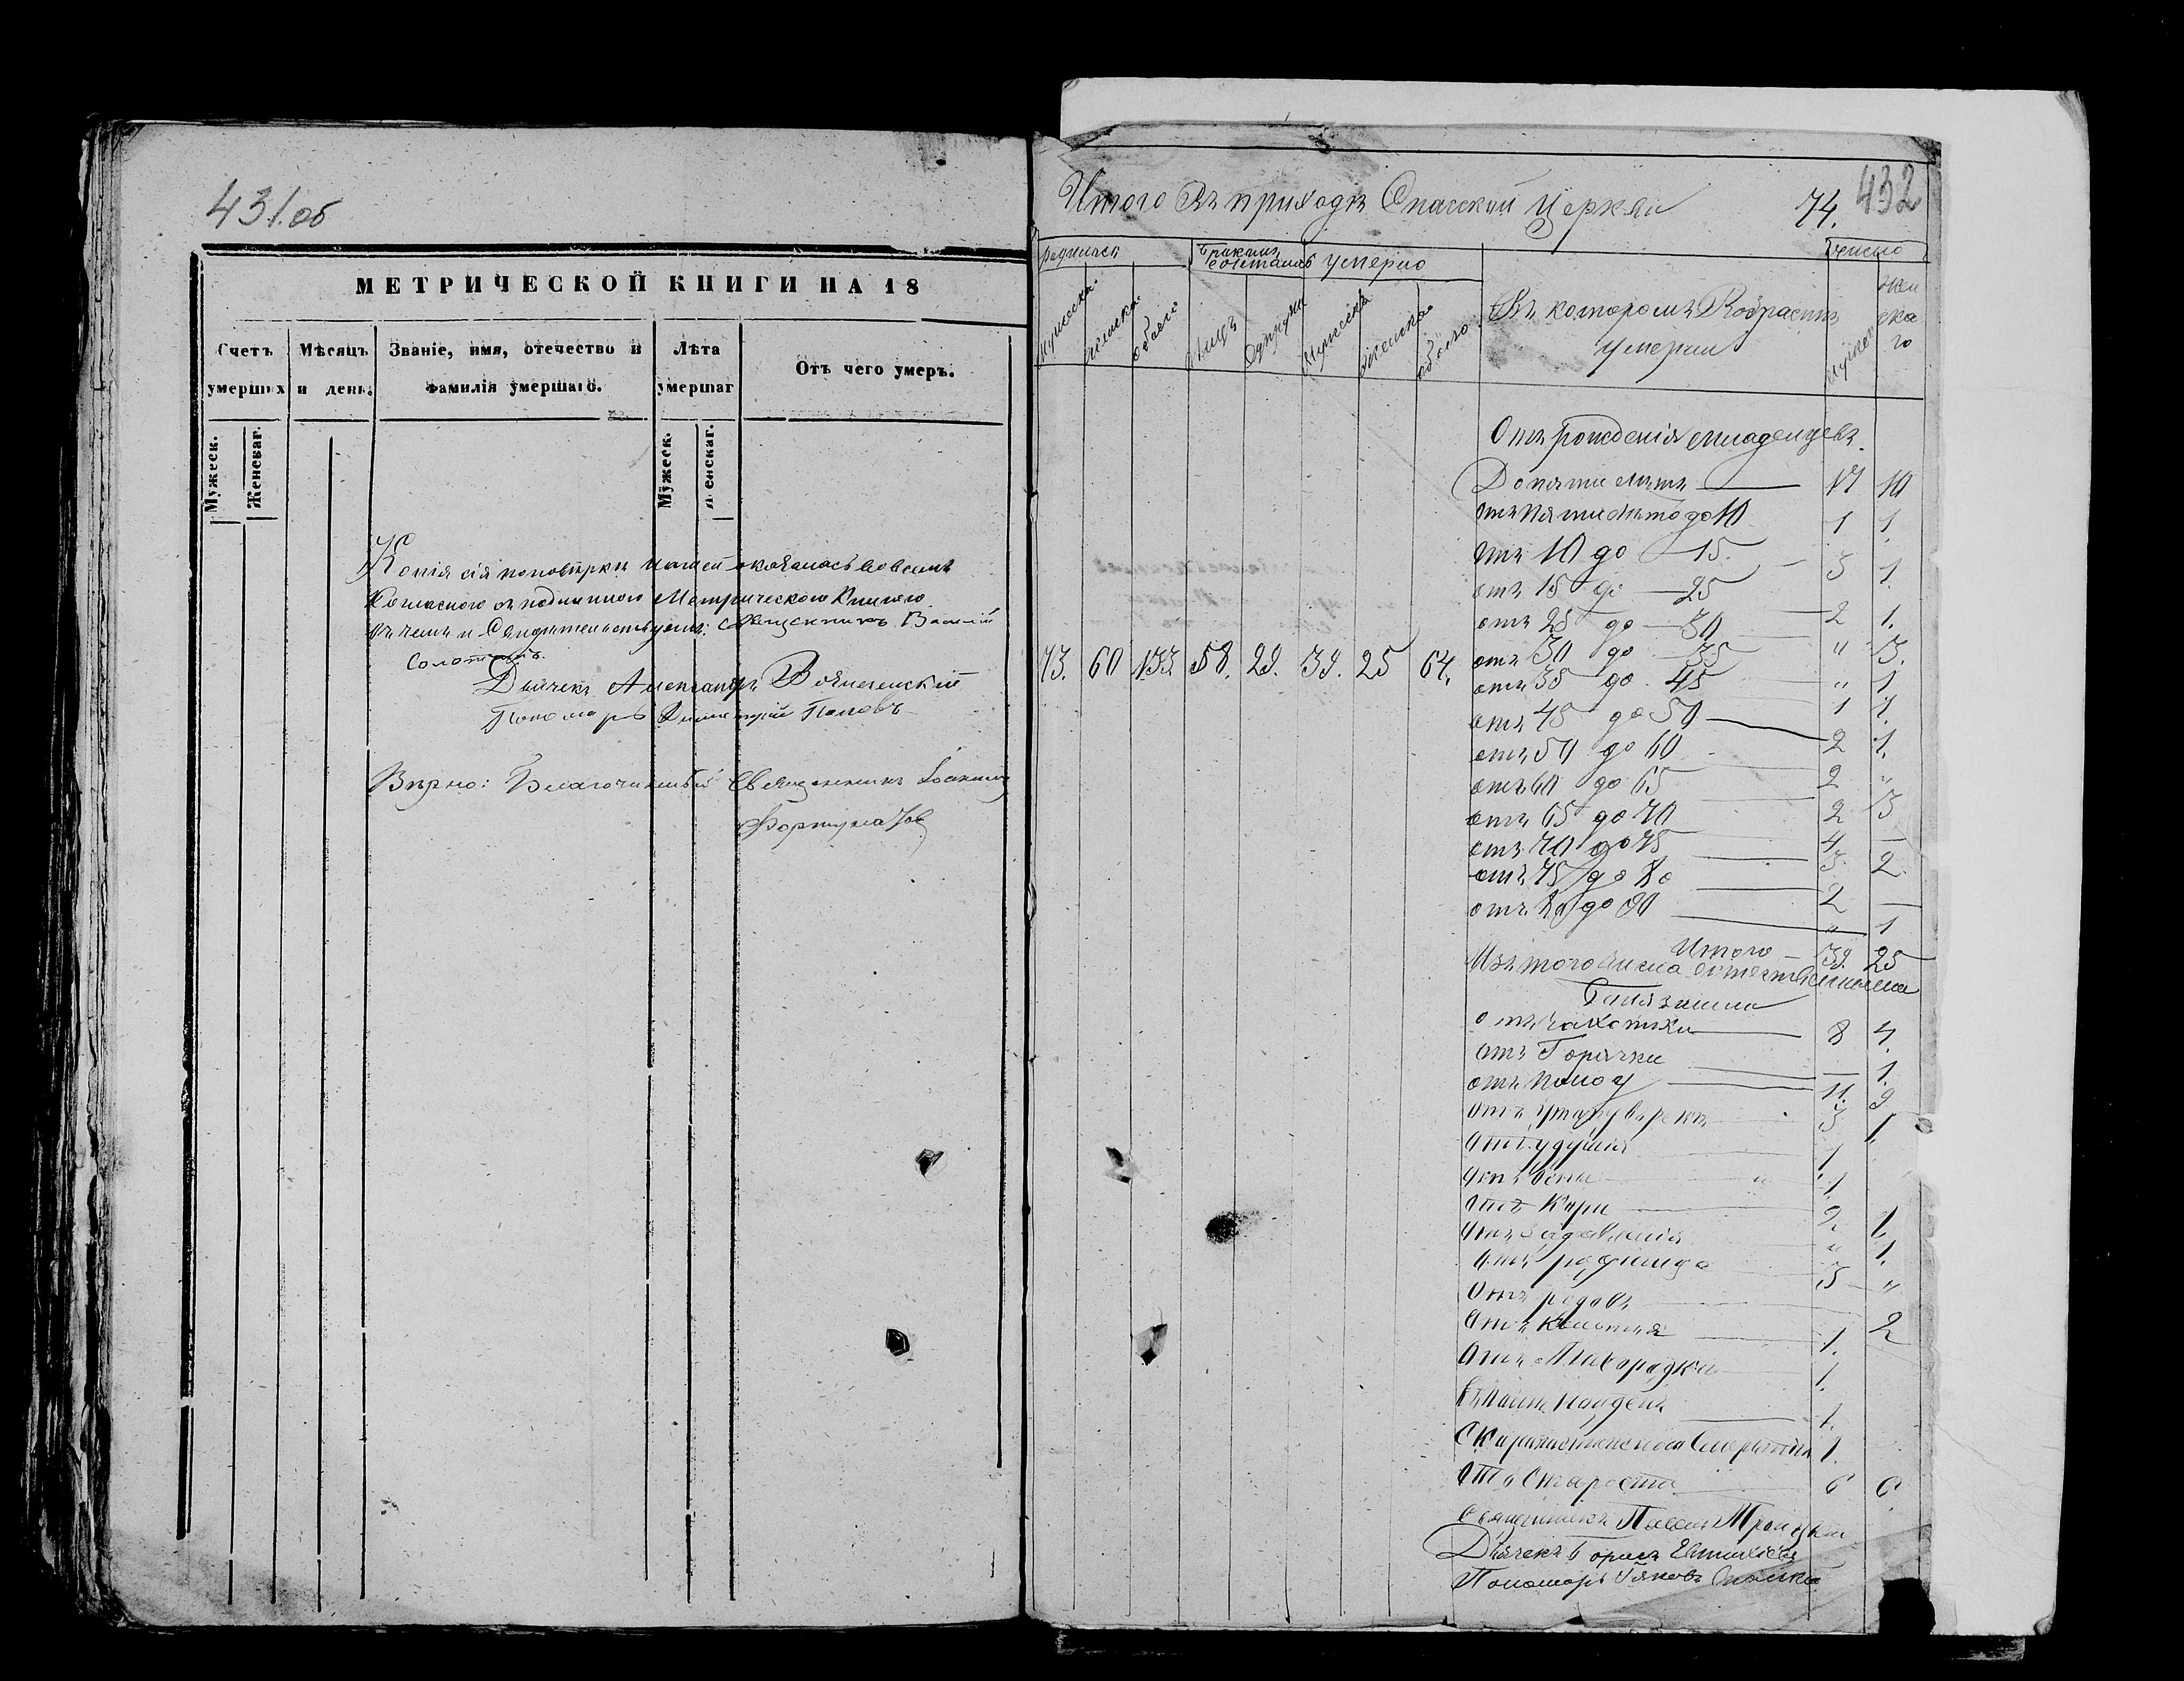 431.об
МЕТРИЧЕСКОЙ КНИГИ НА 18
Счетъ умершихъ
Мѣсяцъ и день.
Званіе, имя, отечество и фамилія умершаго.
Лѣта умершаг
Отъ чего умеръ.
Мужеск.
Женскаг.
Мужеск.
Женскаг.
Копія сія по повѣркѣ нашей оказалась во всемъ
согласною съ подлинною Метрическою Книгою
въ чемъ и свидѣтельствуемъ: Священникъ Василій
Дьячекъ Александръ Вознесенскій
Пономарь Димитрій Поповъ
Вѣрно: Благочинный Священникъ Іоаннъ
Фортунатов
432
Итого въ приходѣ Спасской Церкви 74.
родилось
бракомъ сочеталось
умерло
число
мужеска
женска
обоего
лицъ
мужеска
женска
обоего
Въ которомъ возрастѣ умерли
мужеск
женскаго
Отъ рожденія младенцевъ
До пяти лѣтъ — 17 10
отъ пяти лѣтъ до 10 1 1.
отъ 10 до — 15. — 3 1.
отъ 15 до — 25 — 2 1.
отъ 25 до — 30 — " 3.
73. 60 133. 58. 29. 39. 25 64.
отъ 30 до 35 " 1
отъ 35 до 45 1 1.
отъ 45 до 50 — 2 1.
отъ 50 до 60 2 "
отъ 60 до 65 — 2 3
отъ 65 до 70 4 —
отъ 70 до 75 — 3. 2.
отъ 75 до 80 — 2 —
отъ 80 до 90 — " 1
Итого — 39. 25
Изъ того числа
отъ чахотки — 8 4.
отъ Горячки — — 1.
отъ поносу — 11. 9
3 1.
отъ удушія 1
отъ оспы " 1.
отъ Кори — 2. 1.
отъ задавленія " 1.
отъ родимца 3 "
отъ родовъ — 2
отъ колотья — 1.
отъ Лихорадки 1.
— 1.
Скоропостижною смертію 1.
отъ Старости 6 6.
Священникъ
Дьячекъ Борисъ
Пономарь Яковъ